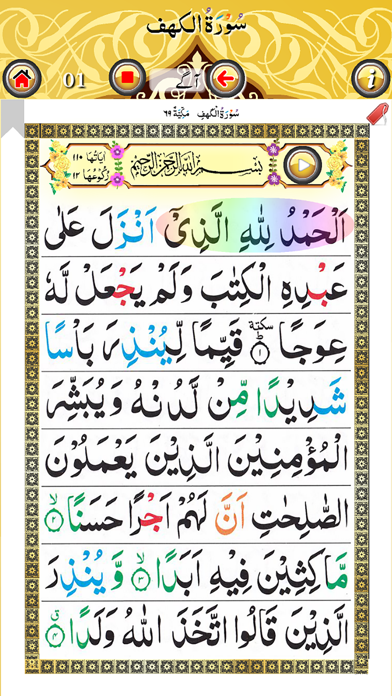 سُوْرَةُ الْكَهْفِ
01
آگے
i
سُوْرَةُ الْكَهْفِ مَكِّيَّةٌ ٦٩
اٰيَاتُهَا ١١٠
رُكُوْعُهَا ١٢
بِسْمِ اللهِ الرَّحْمٰنِ الرَّحِيْمِ
اَلْحَمْدُ لِلّٰهِ الَّذِىْٓ اَنْزَلَ عَلٰى
عَبْدِهِ الْكِتٰبَ وَلَمْ يَجْعَلْ لَّهٗ
عِوَجًا ؕ سكتة ١ قَيِّمًا لِّيُنْذِرَ بَاْسًا
شَدِيْدًا مِّنْ لَّدُنْهُ وَيُبَشِّرَ
الْمُؤْمِنِيْنَ الَّذِيْنَ يَعْمَلُوْنَ
الصّٰلِحٰتِ اَنَّ لَهُمْ اَجْرًا حَسَنًا ۙ ٢
مَّاكِثِيْنَ فِيْهِ اَبَدًا ۙ ٣ وَّيُنْذِرَ
الَّذِيْنَ قَالُوا اتَّخَذَ اللّٰهُ وَلَدًا ۗ ٤